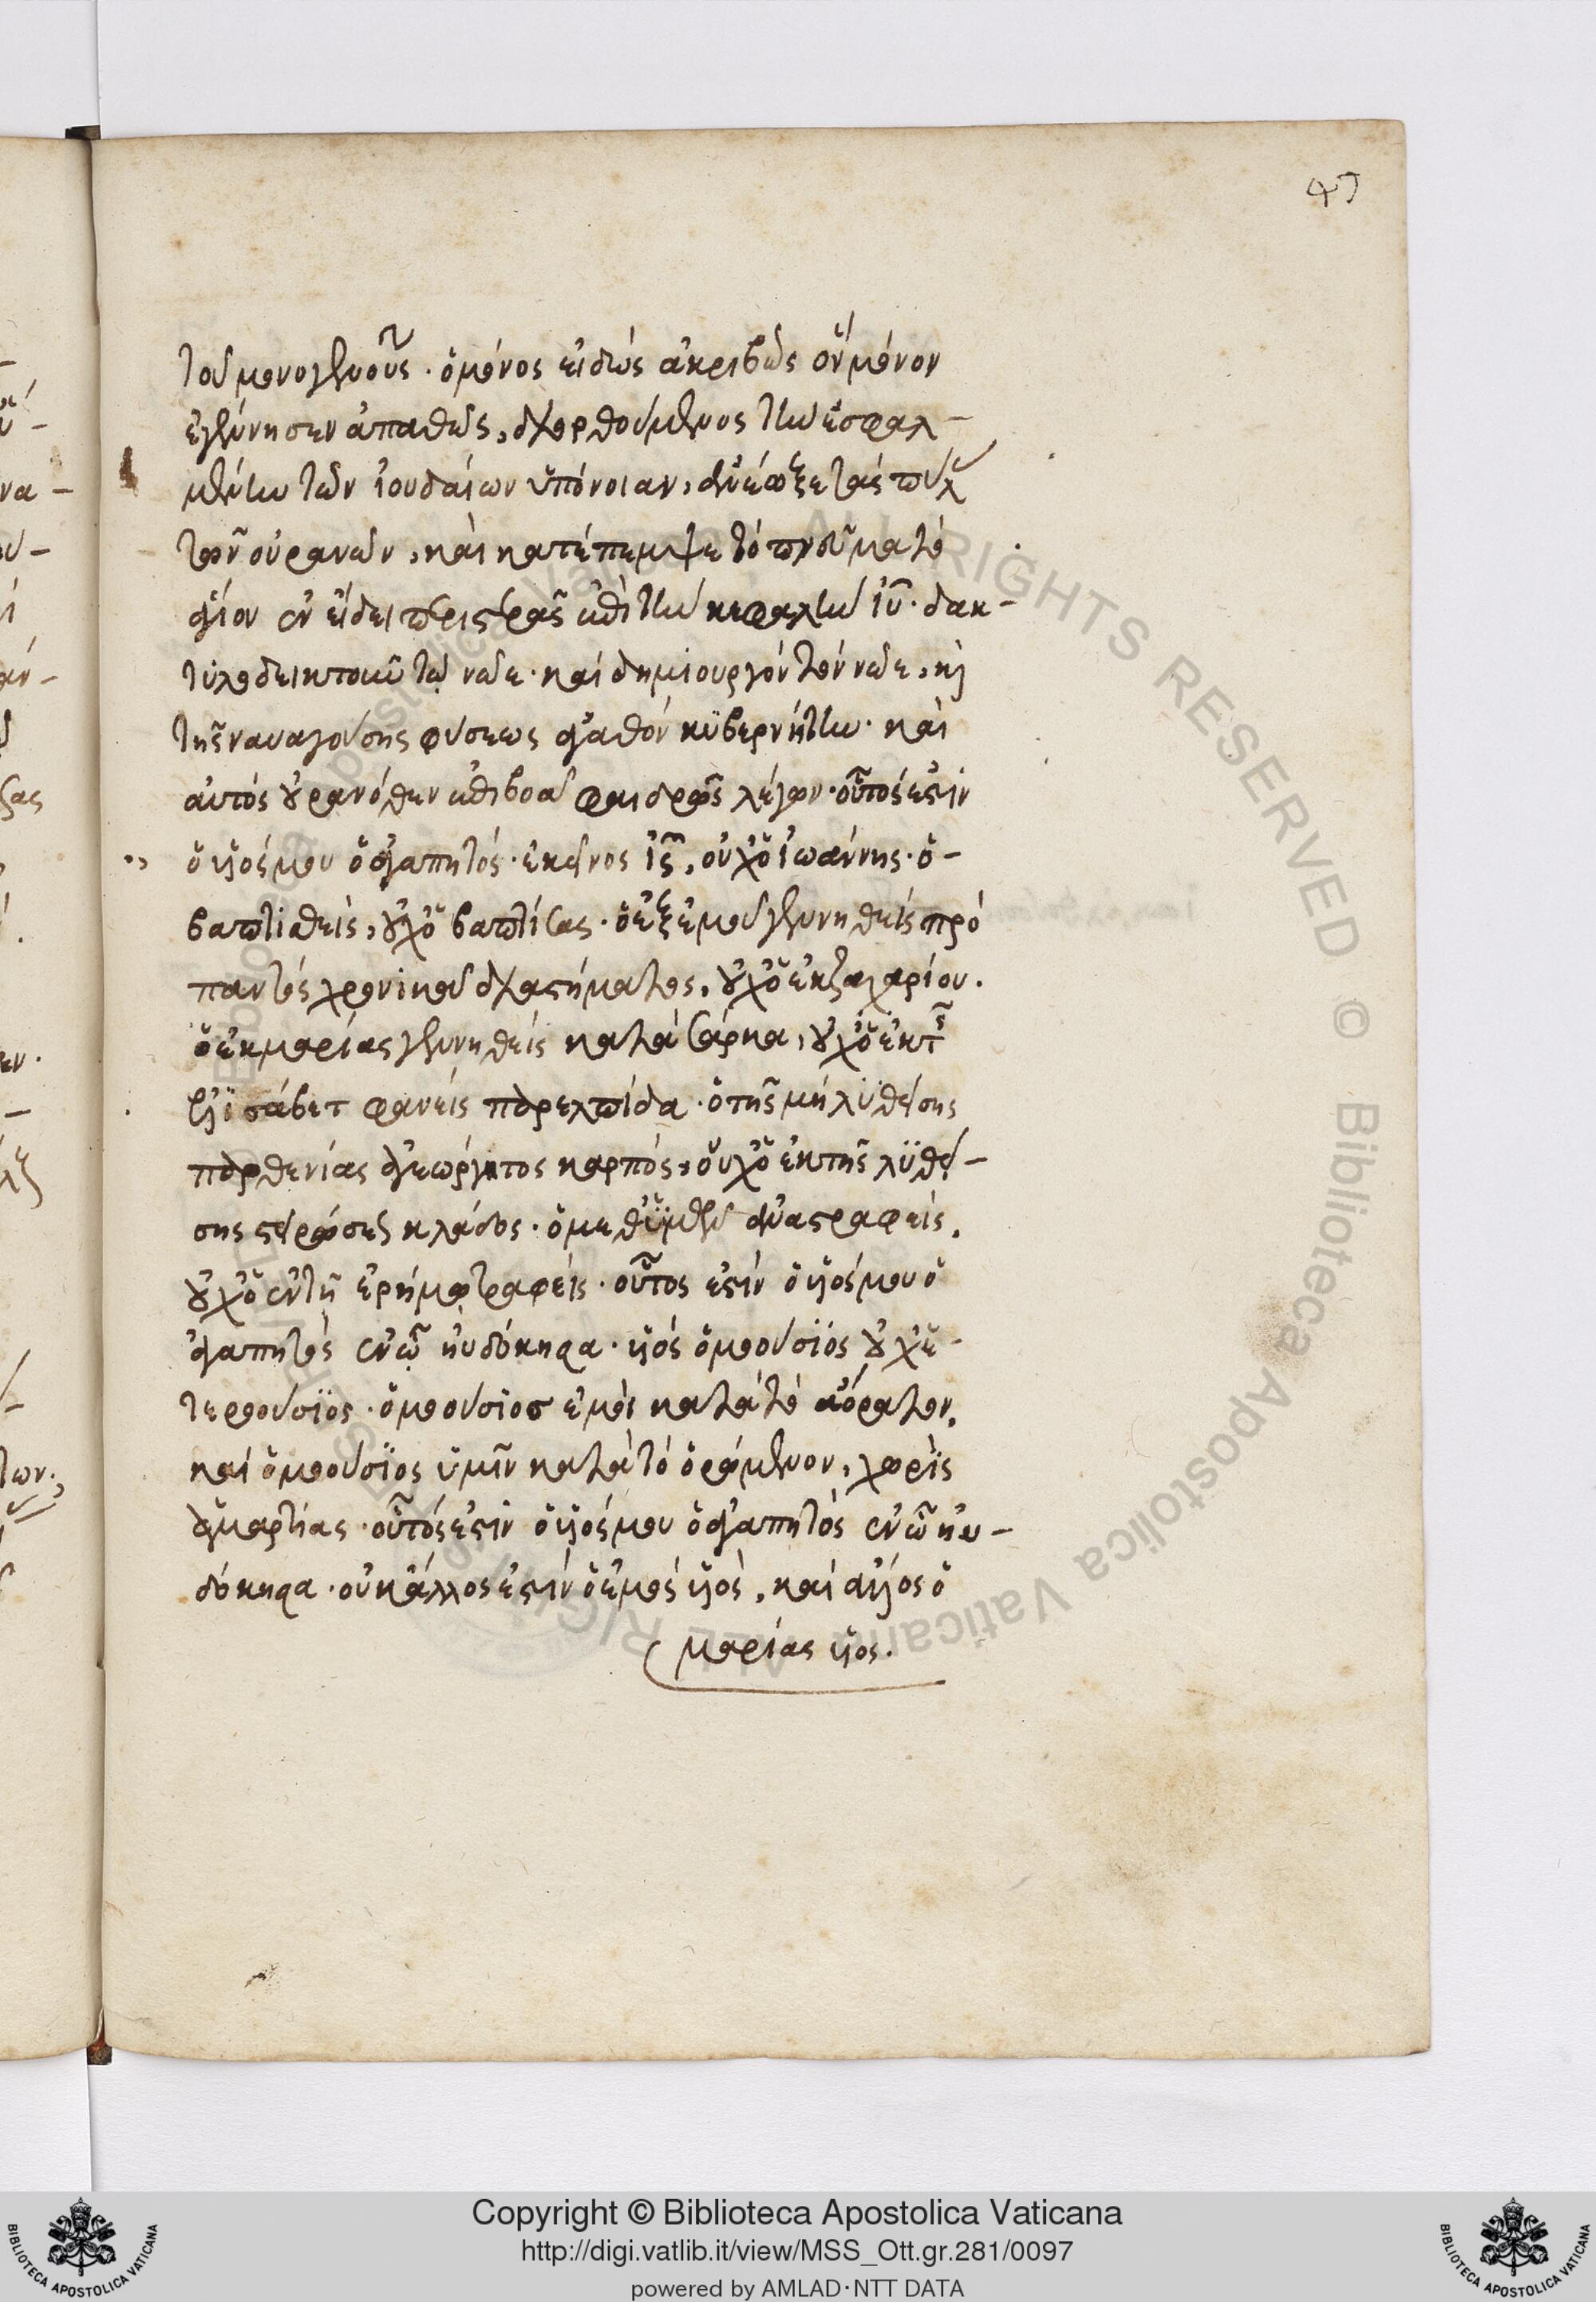 47
τοῦ μονογενοῦς· ὁ μόνος εἰδὼς ἀκριβῶς ὃν μόνον
ἐγέννησεν ἀπαθῶς, διορθούμενος τὴν ἐσφαλ-
μένην τῶν ἰουδαίων ὑπόνοιαν, ἀνέωξε τὰς πύλ
τῶν οὐρανῶν, καὶ κατέπεμψε τὸ πνεῦμα τὸ
ἅγιον ἐν εἴδει περιστερᾶς ἐπὶ τὴν κεφαλὴν ἰῦ· δακ-
τυλοδεικτοῦν τῷ νῶε· καὶ δημιουργὸν τὸν νῶε, κ
τῆς ναυαγούσης φύσεως ἀγαθὸν κυβερνήτην· καὶ
αὐτὸς οὐρανόθεν ἐπιβοᾷ φαιδρῶς λέγων· οὗτός ἐστιν
ὁ υἱός μου ὁ ἀγαπητός· ἐκεῖνος ἰς, οὐχ ὁ ἰωάννης· ὁ-
βαπτισθεὶς, οὐχ ὁ βαπτίσας· ὁ ἐξ ἐμοῦ γεννηθεὶς πρὸ
παντὸς χρονικοῦ διαστήματος, οὐχ ὁ ἐκ ζαχαρίου.
ὁ ἐκ μαρίας γεννηθεὶς κατὰ σάρκα, οὐχ ὁ ἐκ τῆς
ἐλισάβετ φανεὶς παρελπίδα· ὁ τῆς μὴ λυθείσης
παρθενίας ἀγεώργητος καρπός, οὐχ ὁ ἐκ τῆς λυθεί-
σης στειρώσεως κλάδος· ὁ μεθ' ὑμῶν ἀναστραφεὶς,
οὐχ ὁ ἐν τῇ ἐρήμῳ τραφεὶς· οὗτος ἐστὶν ὁ υἱός μου ὁ
ἀγαπητὸς ἐν ᾧ ηὐδόκησα· υἱὸς ὁμοούσιος οὐχ ἑ-
τεροούσιος· ὁμοούσιος ἐμοὶ κατὰ τὸ ἀόρατον,
καὶ ὁμοούσιος ὑμῖν κατὰ τὸ ὁρώμενον, χωρὶς
ἁμαρτίας· οὗτός ἐστιν ὁ υἱός μου ὁ ἀγαπητὸς ἐν ᾧ ηὐ-
δόκησα· οὐκ ἄλλος ἐστὶν ὁ ἐμὸς υἱὸς, καὶ ἄλλος ὁ
μαρίας υἱος.
Copyright © Biblioteca Apostolica Vaticana
http://digi.vatlib.it/view/MSS_Ott.gr.281/0097
powered by AMLAD·NTT DATA